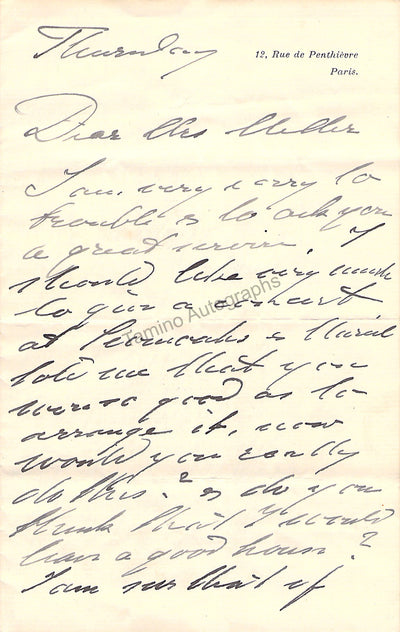 Thursday
12, Rue de Penthièvre
Paris.
Dear Mrs Meller
I am very sorry to
trouble & to ask you
a great service, I
should like very much
to give a concert
at & 
told me that you
were so good as to
arrange it, now
would you really
do this? & do you
think that I would
have a good house?
I am sure that if
Tamino Autographs